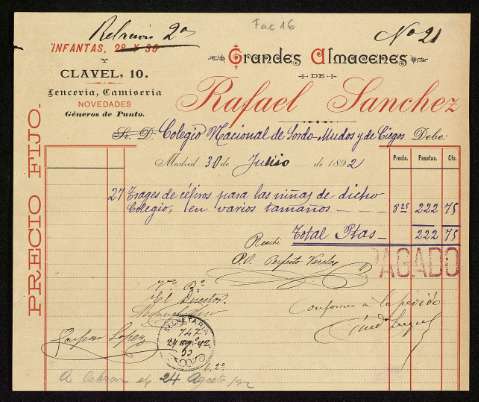 Relación 2ª
Fac 16
Nº 21
INFANTAS, 28 Y 30
Y
CLAVEL, 10.
Lencería, Camisería
NOVEDADES
Géneros de Punto.
Grandes Almacenes
DE
Rafael Sanchez
PRECIO FIJO.
Sr. D. Colegio Nacional de Sordo-Mudos y de Ciegos Debe
Madrid 30 de Julio de 1892
Precio. Pesetas. Cts.
27 Trages de céfiros para las niñas de dicho
Colegio, en varios tamaños 8'25 222 75
Total Ptas 222 75
Recibí
PAGADO
Vº Bº
El Director
Conforme a lo pedido
Gaspar Lopez
747
A cobrar el 24 Agosto/92